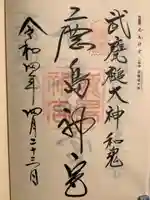 武甕槌大神 和魂
鹿島神宮
令和四年 四月二十三日